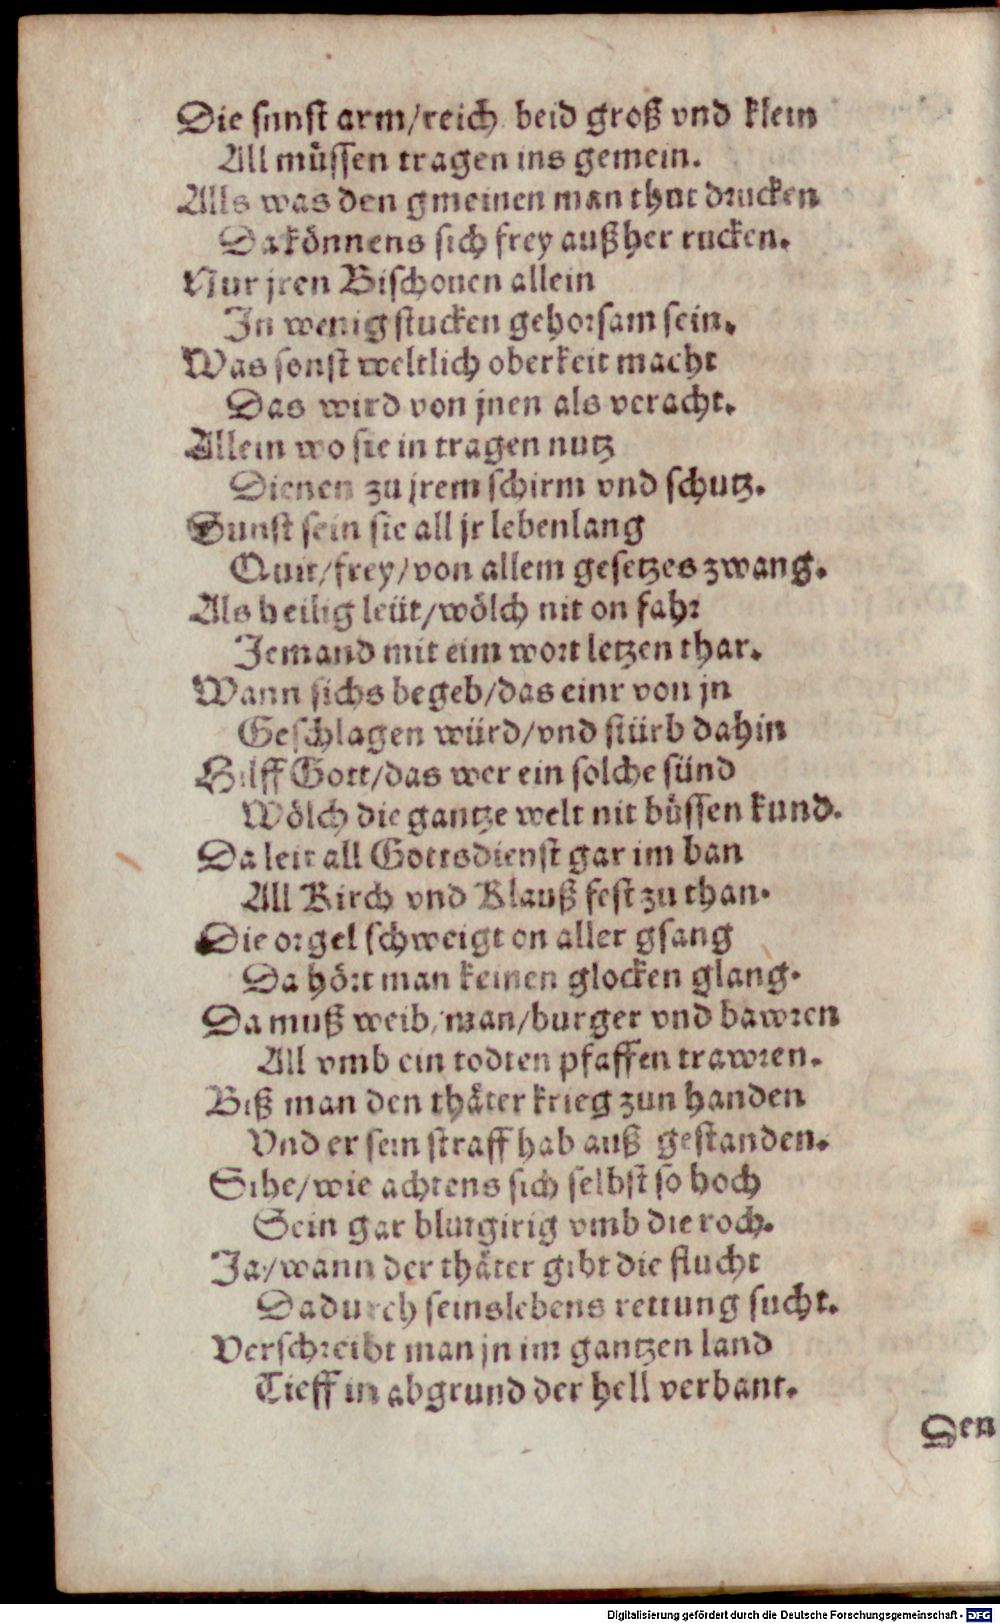 Die sunst arm/reich beid groß vnd klein
All müssen tragen ins gemein.
Alls was den gmeinen man thut drucken
Da können​s sich frey außher rucken.
Nur jren Bischouen allein
In wenig stucken gehorsam sein.
Was sonst weltlich oberkeit macht
Das wird von jnen als veracht.
Allein wo sie in tragen nutz
Dienen zu jrem schirm vnd schutz.
Sunst sein sie all jr lebenlang
Quit/frey/von allem gesetzes zwang.
Als heilig leüt/wölch nit on fahr
Jemand mit eim wort letzen thar.
Wann sichs begeb/das einr von jn
Geschlagen würd/vnd stürb dahin
Hilff Gott/das wer ein solche sünd
Wölch die gantze welt nit büssen kund.
Da leit all Gottsdienst gar im ban
All Kirch vnd Klauß fest zu than.
Die orgel schweigt on aller gsang
Da hört man keinen glocken glang.
Da muß weib/man/burger vnd bawren
All vmb ein todten pfaffen trawren.
Biß man den thäter krieg zun handen
Vnd er sein straff hab auß gestanden.
Sihe/wie achtens sich selbst so hoch
Sein gar blutgirig vmb die roch.
Ja/wann der thäter gibt die flucht
Dadurch seinslebens rettung sucht.
Verschreibt man jn im gantzen land
Tieff in abgrund der hell verbant.
Den
Digitalisierung gefördert durch die Deutsche Forschungsgemeinschaft - DFG